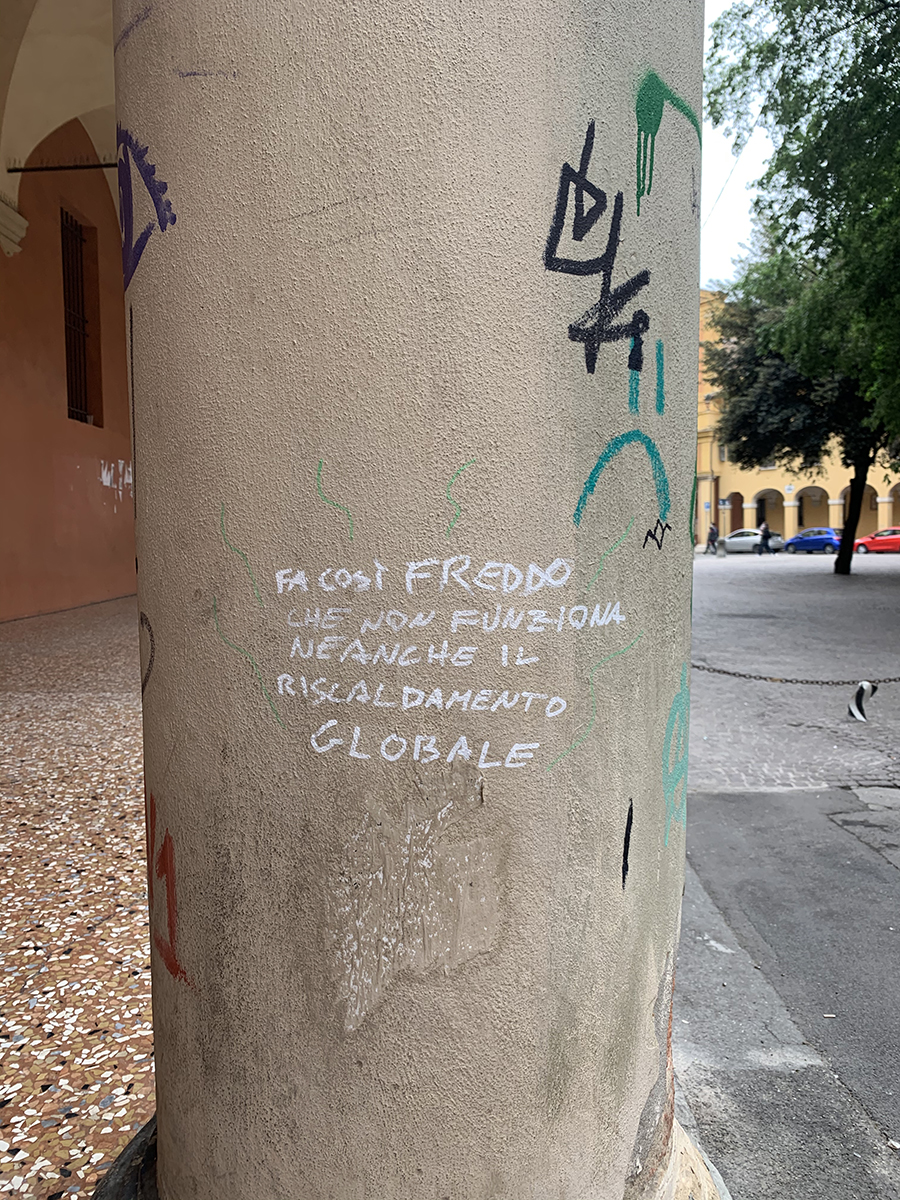 FA COSÌ FREDDO
CHE NON FUNZIONA
NEANCHE IL
RISCALDAMENTO
GLOBALE